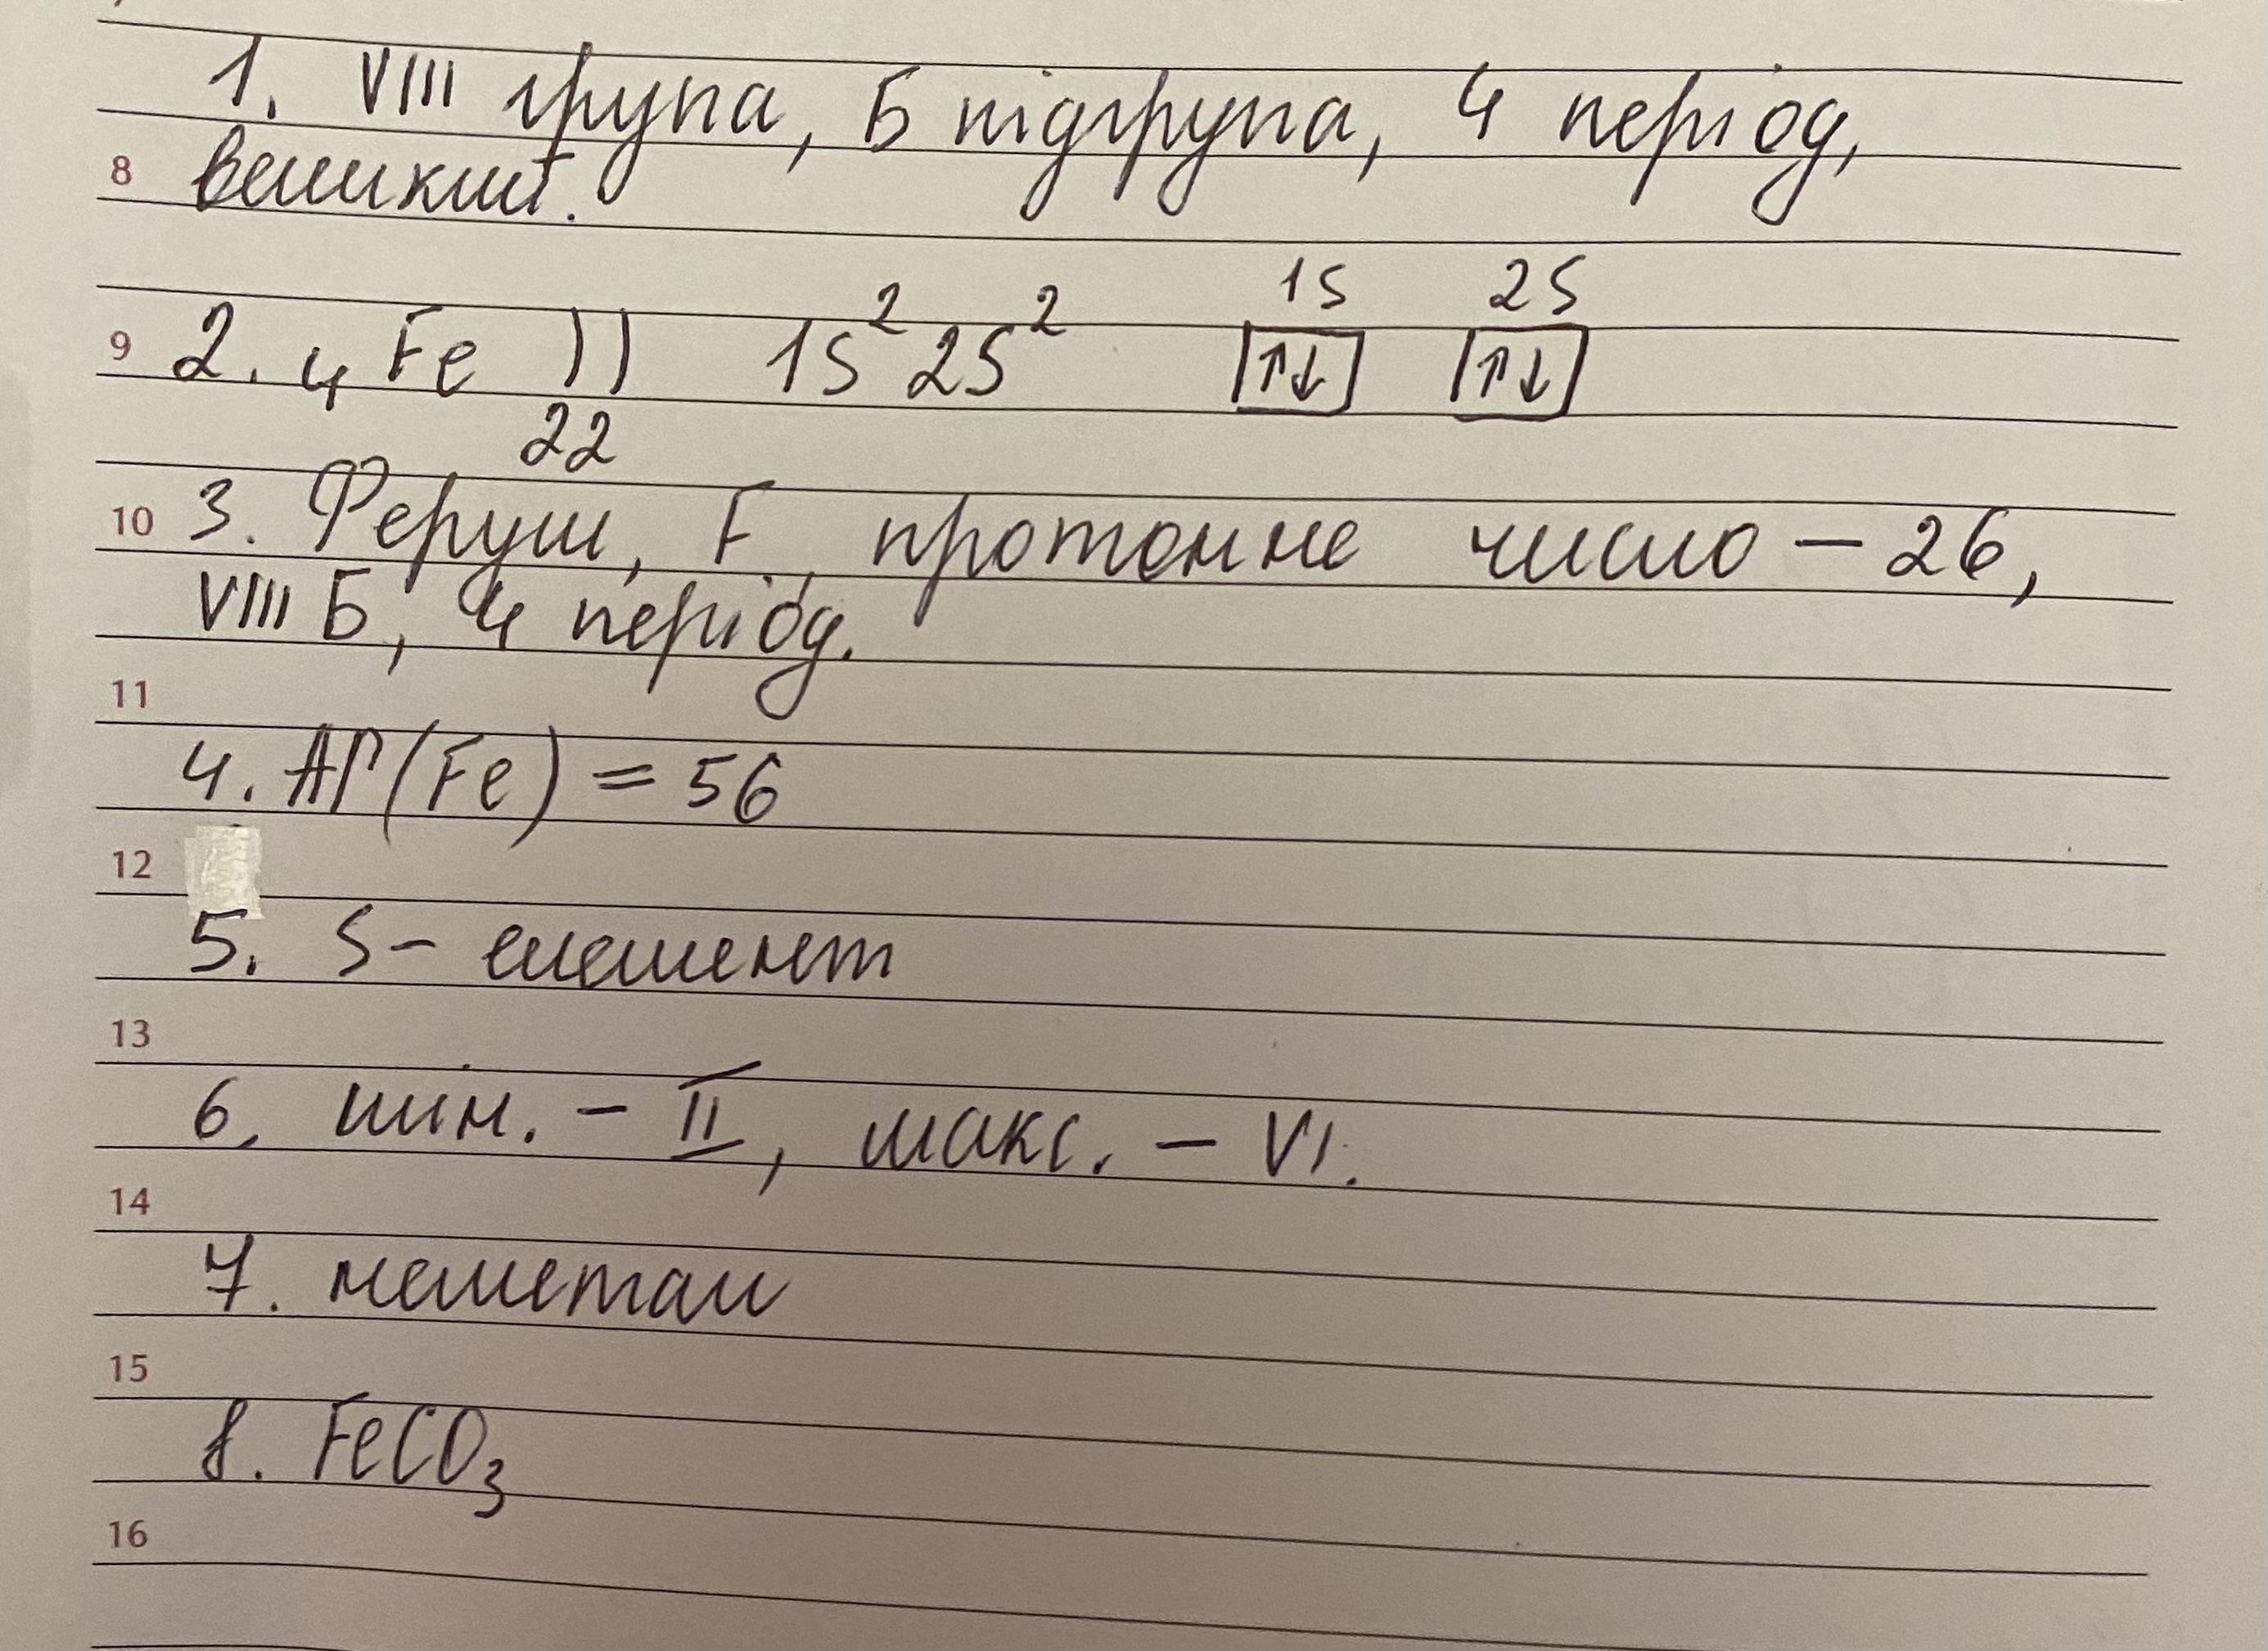 1. VIII група, Б підгрупа, 4 період,
8 великий.
1S 2S
9 2. 4 Fe )) 1S² 2S² ↑↓ ↑↓
22
10 3. Ферум, F, протонне число – 26,
VIII Б, 4 період.
11
4. Аr(Fe) = 56
12
5. S – елемент
13
6. мін. – II, макс. – VI.
14
7. неметал
15
8. FeCO₃
16